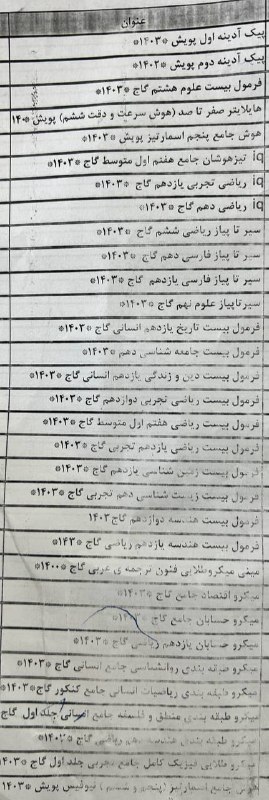 عنوان
پیک آدینه اول پویش *۱۴۰۳*
پیک آدینه دوم پویش *۱۴۰۲*
فرمول بیست علوم هشتم گاج *۱۴۰۳*
هایلایتر صفر تا صد (هوش سرعت و دقت ششم) پویش *۱۴۰
هوش جامع پنجم اسمارتیز پویش *۱۴۰۳*
iq تیزهوشان جامع هفتم اول متوسط گاج *۱۴۰۳*
iq ریاضی تجربی یازدهم گاج *۱۴۰۳*
iq ریاضی دهم گاج *۱۴۰۳*
سیر تا پیاز ریاضی ششم گاج *۱۴۰۳*
سیر تا پیاز فارسی دهم گاج *۱۴۰۳*
سیر تا پیاز فارسی یازدهم گاج *۱۴۰۳*
سیرتاپیاز علوم نهم گاج *۱۴۰۳*
فرمول بیست تاریخ یازدهم انسانی گاج *۱۴۰۲*
فرمول بیست جامعه شناسی دهم *۱۴۰۳*
فرمول بیست دین و زندگی یازدهم انسانی گاج *۱۴۰۲*
فرمول بیست ریاضی تجربی دوازدهم گاج *۱۴۰۳*
فرمول بیست ریاضی هفتم اول متوسط گاج *۱۴۰۳*
فرمول بیست ریاضی یازدهم تجربی گاج *۱۴۰۳*
فرمول بیست زمین شناسی یازدهم گاج *۱۴۰۳*
فرمول بیست زیست شناسی دهم تجربی گاج *۱۴۰۳*
فرمول بیست هندسه دوازدهم گاج ۱۴۰۳
فرمول بیست هندسه یازدهم ریاضی گاج *۱۴۳*
مینی میکروطلایی فنون ترجمه ی عربی گاج *۱۴۰۰*
میکرو اقتصاد جامع گاج *۱۴۰۳*
میکرو حسابان جامع گاج
میکرو حسابان یازدهم ریاضی گاج *۱۴۰۳*
میکرو طبقه بندی روانشناسی جامع انسانی گاج *۱۴۰۳*
میکرو طبقه بندی ریاضیات انسانی جامع کنکور گاج*۱۴۰۳*
میکرو طبقه بندی منطق و فلسفه جامع انسانی جلد اول گاج
میکرو طبقه بندی هندسه دهم ریاضی گاج
میکرو طلایی فیزیک کامل جامع تجربی جلد اول گاج *۱۴۰۳
هوش جامع اسمارتیز (پنجم و ششم) تیزلیس پویش *۱۴۰۳